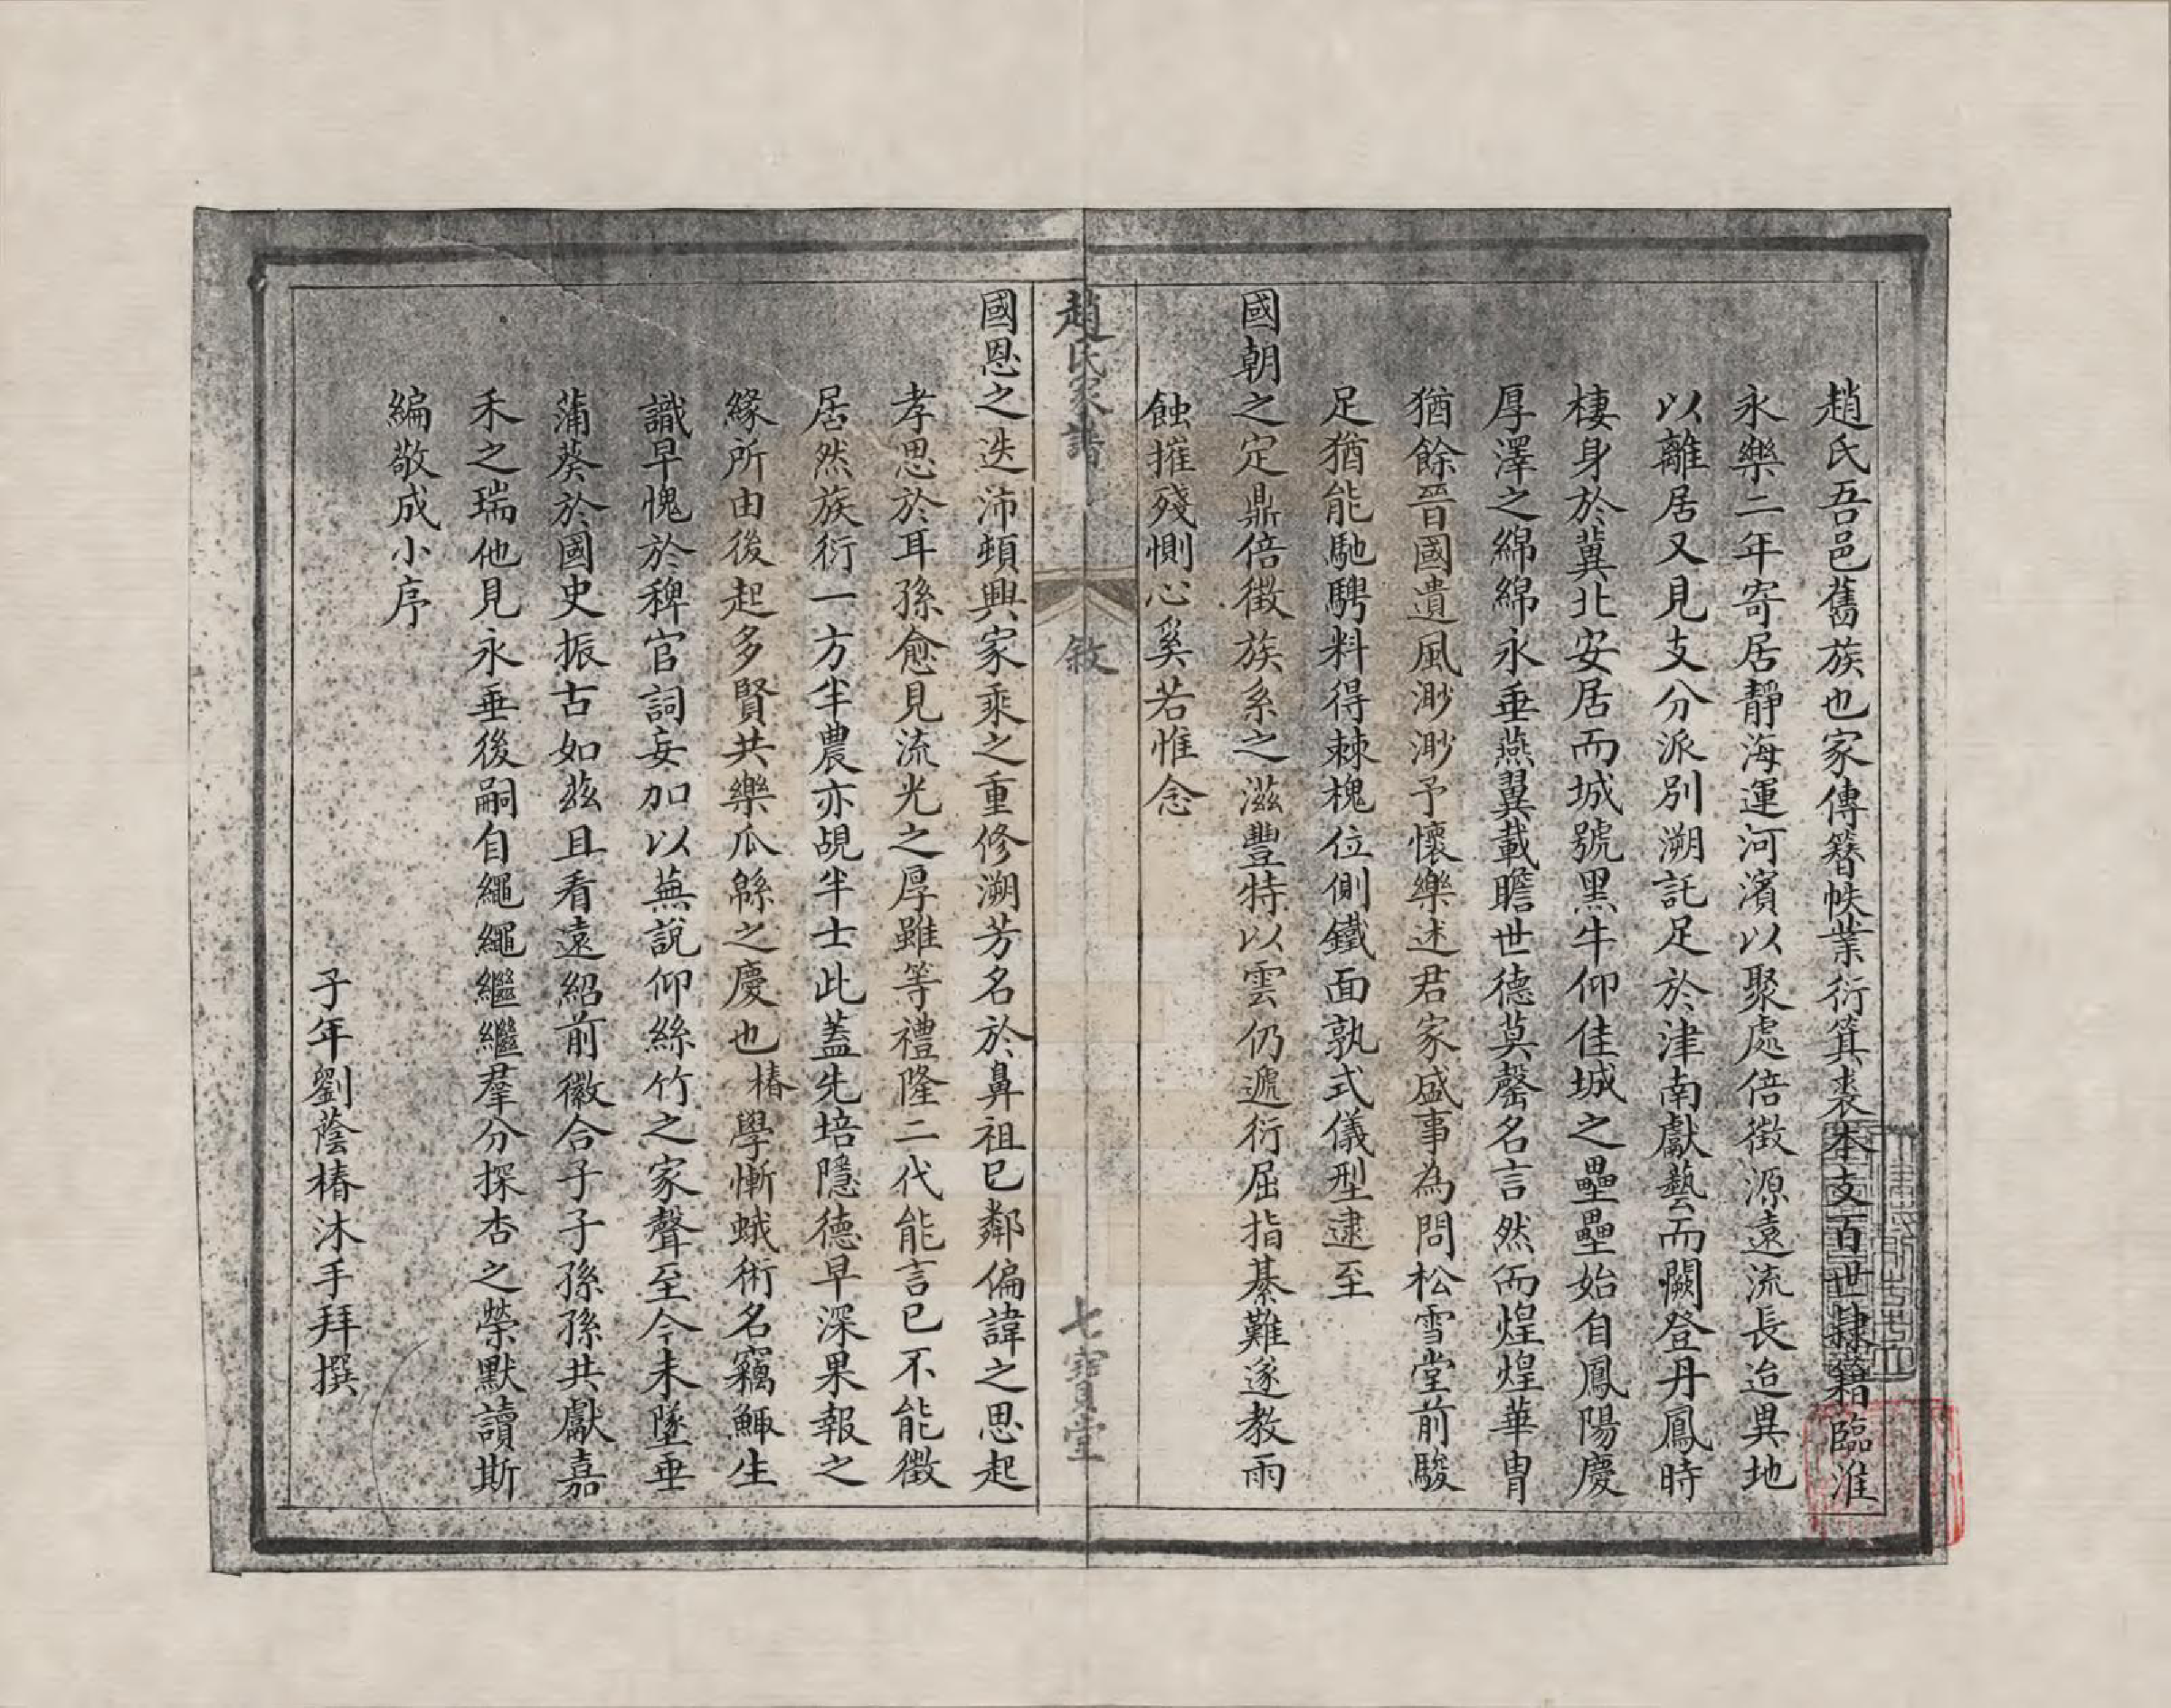 趙氏吾邑舊族也家傳簪帙業衍箕裘本支百世隸籍臨淮
永樂二年寄居靜海運河濱以聚處倍徵源遠流長迨異地
以離居又見支分派別溯託足於津南獻藝而闕登丹鳳時
棲身於冀北安居而城號黑牛仰佳城之壘壘始自鳳陽慶
厚澤之綿綿永垂燕翼載瞻世德莫罄名言然而煌煌華冑
猶餘晉國遺風渺渺予懷樂述君家盛事為問松雪堂前駿
足猶能馳騁料得棘槐位側鐵面孰式儀型逮至
國朝之定鼎倍徵族系之滋豐特以雲仍遞衍屈指綦難遂教雨
蝕摧殘惻心奚若惟念
趙氏家譜
敘
七寶堂
國恩之迭沛頓興家乘之重修溯芳名於鼻祖已鄰偏諱之思起
孝思於耳孫愈見流光之厚雖等禮隆二代能言已不能徵
居然族衍一方半農亦覘半士此蓋先培隱德早深果報之
緣所由後起多賢共樂瓜緜之慶也椿學慚蛾術名竊鯫生
識早愧於稗官詞妄加以蕪說仰絲竹之家聲至今未墜垂
蒲葵於國史振古如茲且看遠紹前徽合子子孫孫共獻嘉
禾之瑞他見永垂後嗣自繩繩繼繼羣分探杏之榮默讀斯
編敬成小序
子年劉蔭椿沐手拜撰